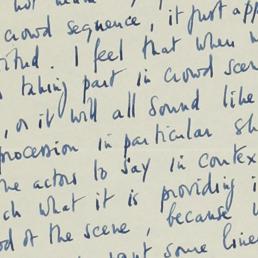 crowd sequence, it just app
I feel that when
taking part in crowd scen
, or it will all sound like
procession in particular sh
e actors to say in contex
ch what it is providing i
od of the scene, because
want some line